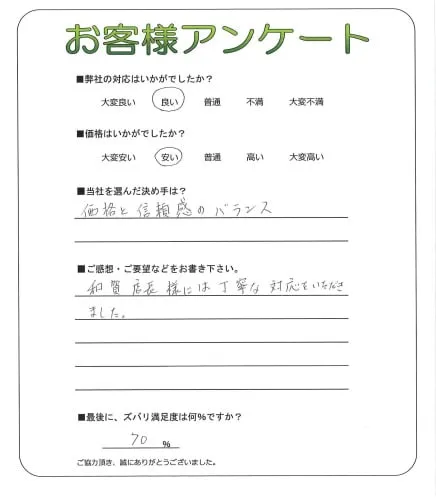 お客様アンケート
■弊社の対応はいかがでしたか？
大変良い 良い 普通 不満 大変不満
■価格はいかがでしたか？
大変安い 安い 普通 高い 大変高い
■当社を選んだ決め手は？
価格と信頼感のバランス
■ご感想・ご要望などをお書き下さい。
和賀店長様には丁寧な対応をいただき
ました。
■最後に、ズバリ満足度は何％ですか？
70 %
ご協力頂き、誠にありがとうございました。